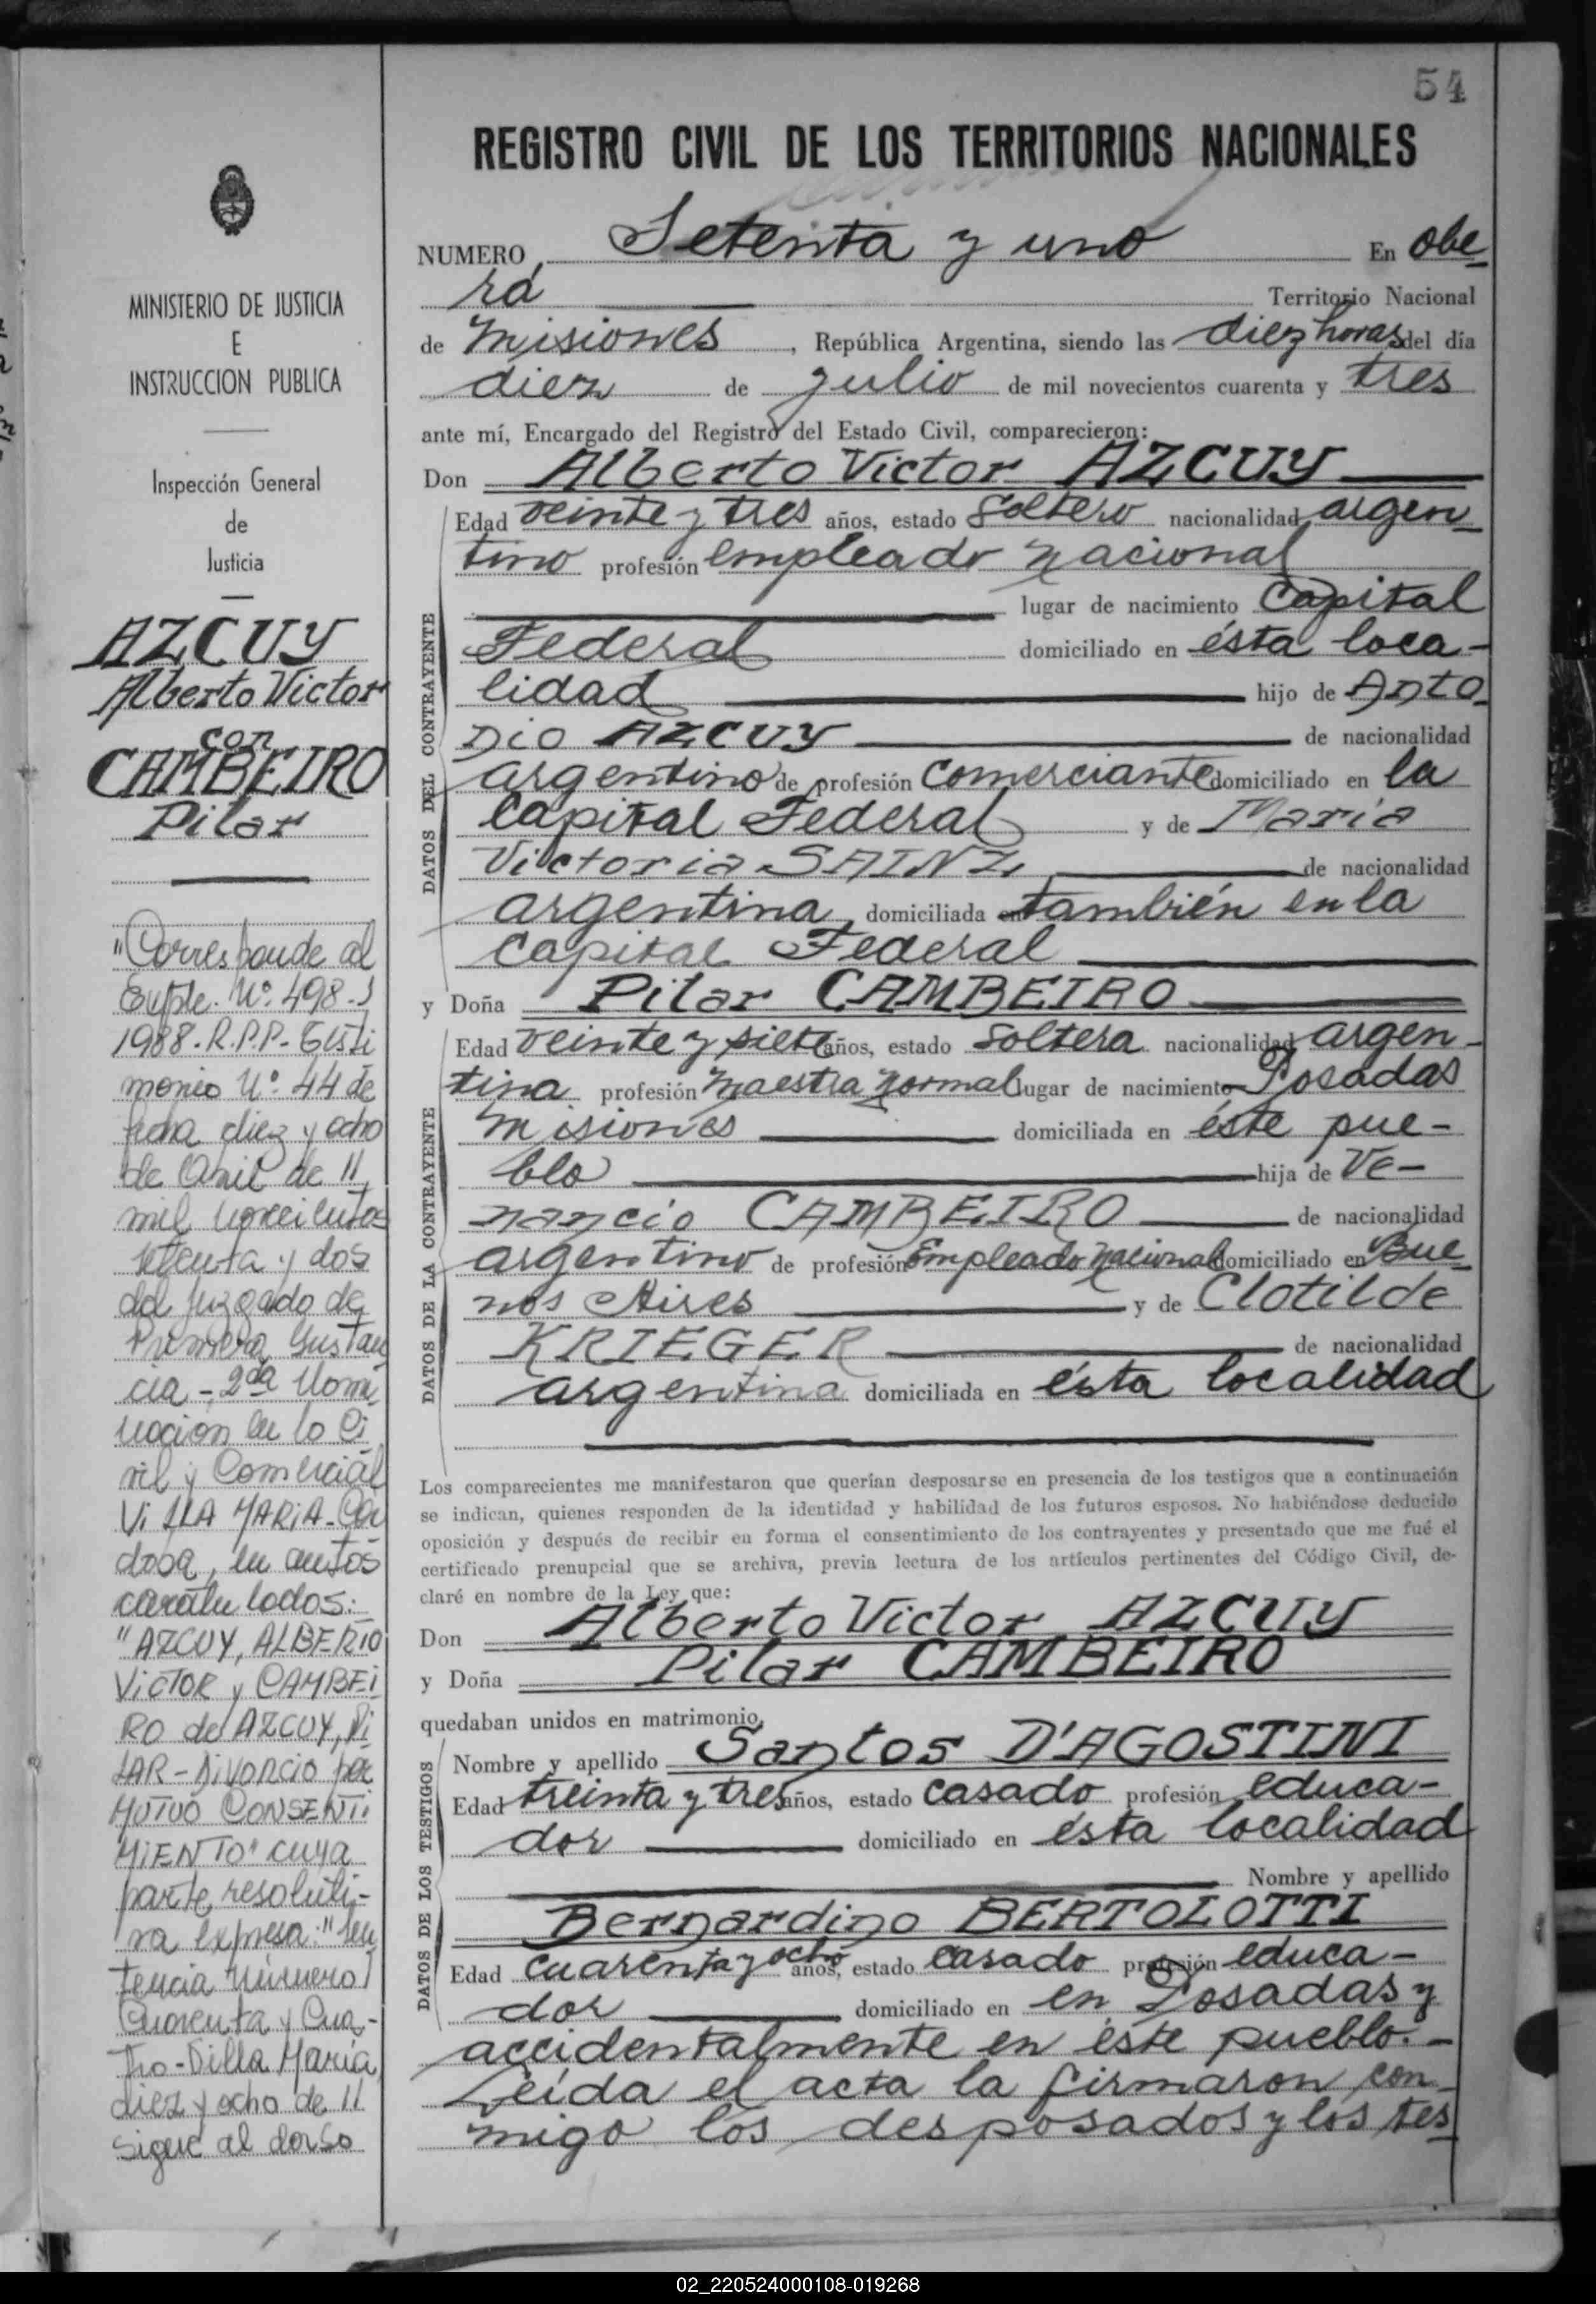 54
REGISTRO CIVIL DE LOS TERRITORIOS NACIONALES
NUMERO Setenta y uno En Obe-
rá Territorio Nacional
de Misiones, República Argentina, siendo las diez horas del día
diez de julio de mil novecientos cuarenta y tres
ante mí, Encargado del Registro del Estado Civil, comparecieron:
Don Alberto Victor AZCUY
Edad veinte y tres años, estado soltero nacionalidad argen-
tino profesión empleado nacional
lugar de nacimiento Capital
Federal domiciliado en ésta loca-
lidad hijo de Anto-
nio AZCUY de nacionalidad
argentino de profesión comerciante domiciliado en la
Capital Federal y de María
Victoria SAINZ de nacionalidad
argentina, domiciliada en también en la
Capital Federal
y Doña Pilar CAMBEIRO
Edad veinte y siete años, estado soltera nacionalidad argen-
tina profesión maestra normal lugar de nacimiento Posadas
Misiones domiciliada en éste pue-
blo hija de Ve-
nancio CAMBEIRO de nacionalidad
argentino de profesión Empleado Nacional domiciliado en Bue-
nos Aires y de Clotilde
KRIEGER de nacionalidad
argentina domiciliada en ésta localidad
DATOS DEL CONTRAYENTE
DATOS DE LA CONTRAYENTE
Los comparecientes me manifestaron que querían desposarse en presencia de los testigos que a continuación
se indican, quienes responden de la identidad y habilidad de los futuros esposos. No habiéndose deducido
oposición y después de recibir en forma el consentimiento de los contrayentes y presentado que me fué el
certificado prenupcial que se archiva, previa lectura de los artículos pertinentes del Código Civil, de-
claré en nombre de la Ley que:
Don Alberto Victor AZCUY
y Doña Pilar CAMBEIRO
quedaban unidos en matrimonio,
Nombre y apellido Santos D'AGOSTINI
Edad treinta y tres años, estado casado profesión educa-
dor domiciliado en ésta localidad
Nombre y apellido
Bernardino BERTOLOTTI
Edad cuarenta y ocho años, estado casado profesión educa-
dor domiciliado en en Posadas y
accidentalmente en éste pueblo.-
Leída el acta la firmaron con-
migo los desposados y los tes-
DATOS DE LOS TESTIGOS
MINISTERIO DE JUSTICIA
E
INSTRUCCION PUBLICA
Inspección General
de
Justicia
AZCUY
Alberto Victor
con
CAMBEIRO
Pilar
"Corresponde al
Expte. Nº 498-
1988-R.P.P- Testi
monio Nº 44 de
fecha diez y ocho
de Abril de
mil novecientos
setenta y dos
del Juzgado de
Primera Instan
cia - 2da Nomi
nación en lo Ci
vil y Comercial
ViLLA MARiA-Cór
doba, en autos
caratulados:
"AZCUY, ALBERTO
ViCTOR y CAMBEi
RO de AZCUY, Pi
LAR-DiVORCiO por
MUTUO CONSENTi
MiENTO" cuya
parte resoluti-
va expresa: "Sen
tencia Número
Cuarenta y Cua-
tro-Villa María,
diez y ocho de
sigue al dorso
02_220524000108-019268